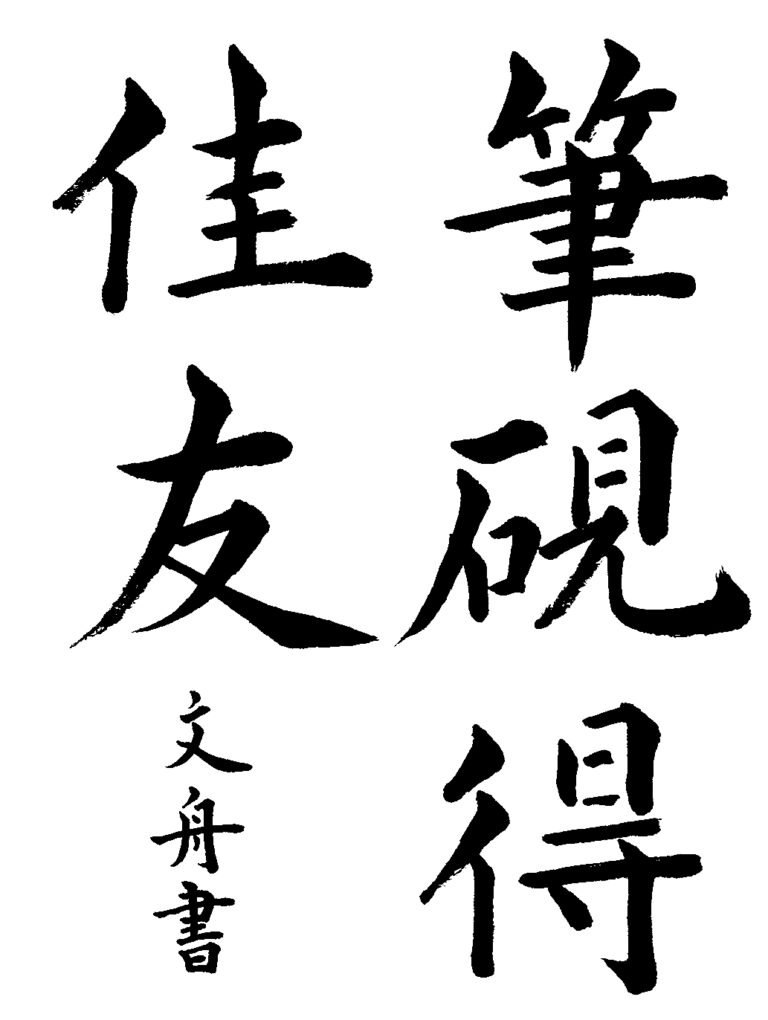 筆硯得
佳友
文舟書